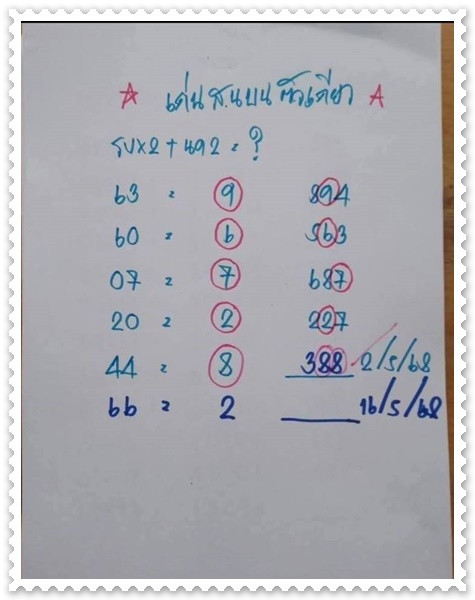 ☆ เด่น ส.น บน ตัวเดียว A
รบx2 + นอ2 = ?
63 = 9 894
60 = 6 563
07 = 7 687
20 = 2 227
44 = 8 388 2/5/68
66 = 2 ____ 16/5/68